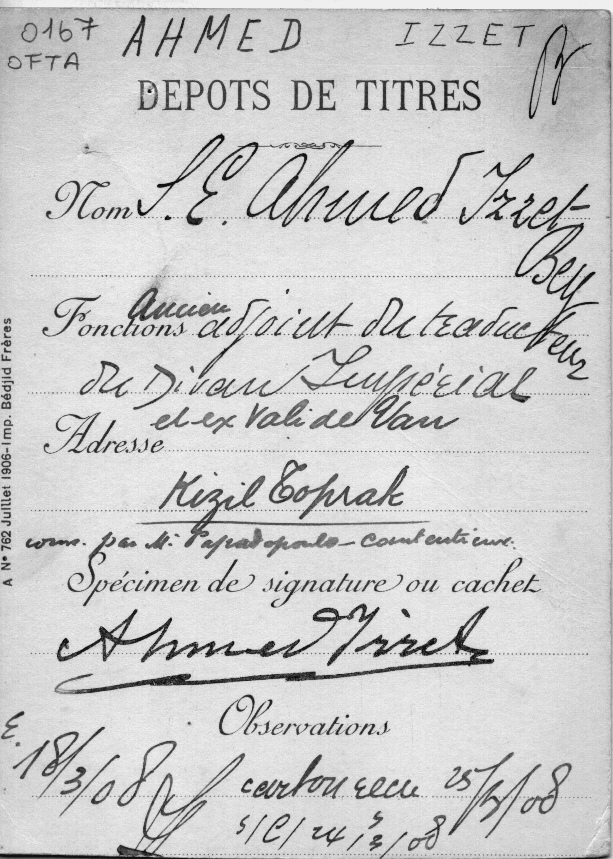 0167 AHMED IZZET
OFTA
DEPOTS DE TITRES
Nom S. E. Ahmed Izzet
Bey
Fonctions Ancien adjoint du traducteur
du Divan Impérial
et ex Vali de Van
Adresse
Kizil Toprak
conn. par Mr Papadopoulo - contentieux.
Spécimen de signature ou cachet
Ahmed Izzet
Observations
E. 18/3/08 carton reçu 25/3/08
s/C/ 24/3/08
A N° 762 Juillet 1906 - Imp. Bédjid Frères